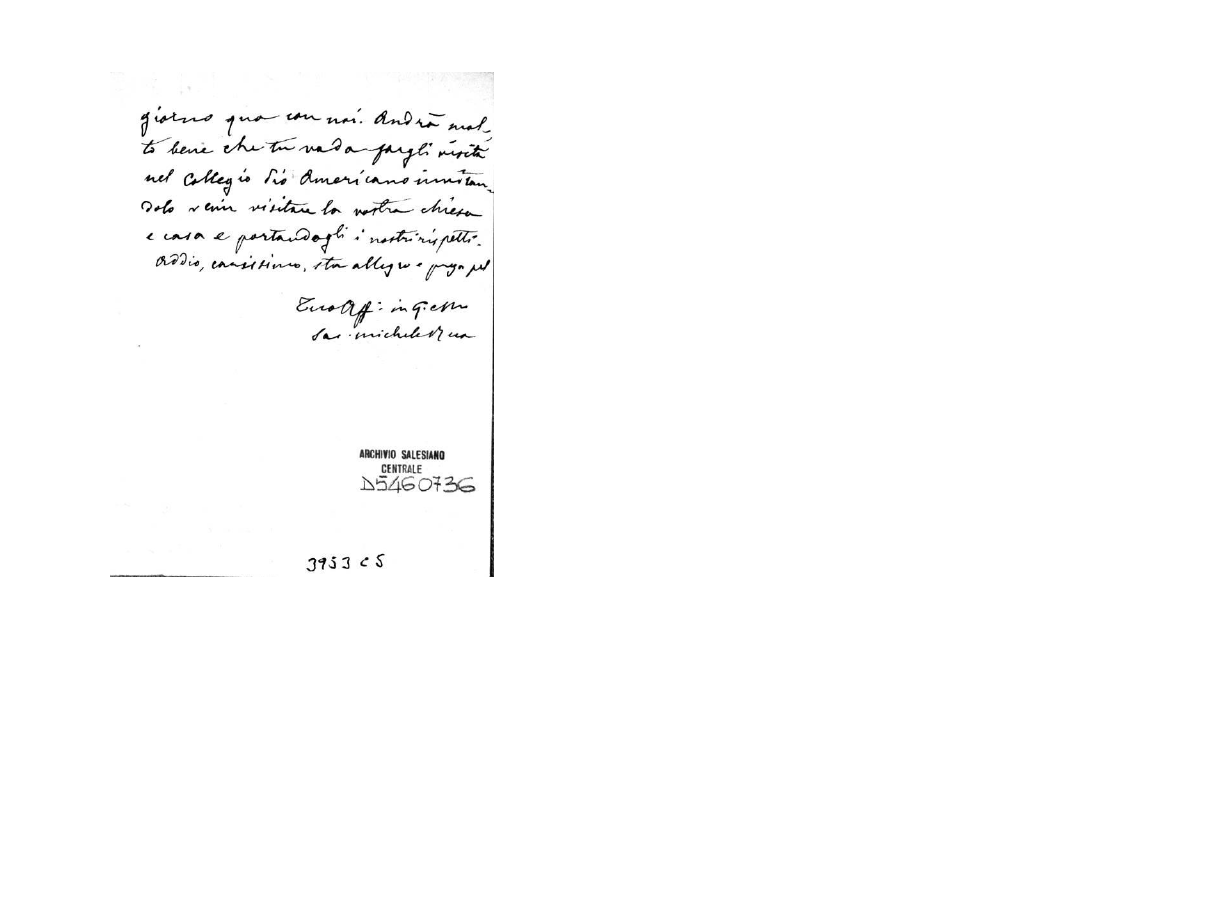 giorno qua con noi. Andrà mol-
to bene che tu vada fargli visita
nel Collegio Pio Americano invitan-
dolo venir visitare la nostra chiesa
e casa e portandogli i nostri rispetti.
Addio, carissimo, sta allegro e prega pel
Tuo Aff: in G. e M.
Sac. Michele Rua
ARCHIVIO SALESIANO
CENTRALE
D5460736
3953 C5